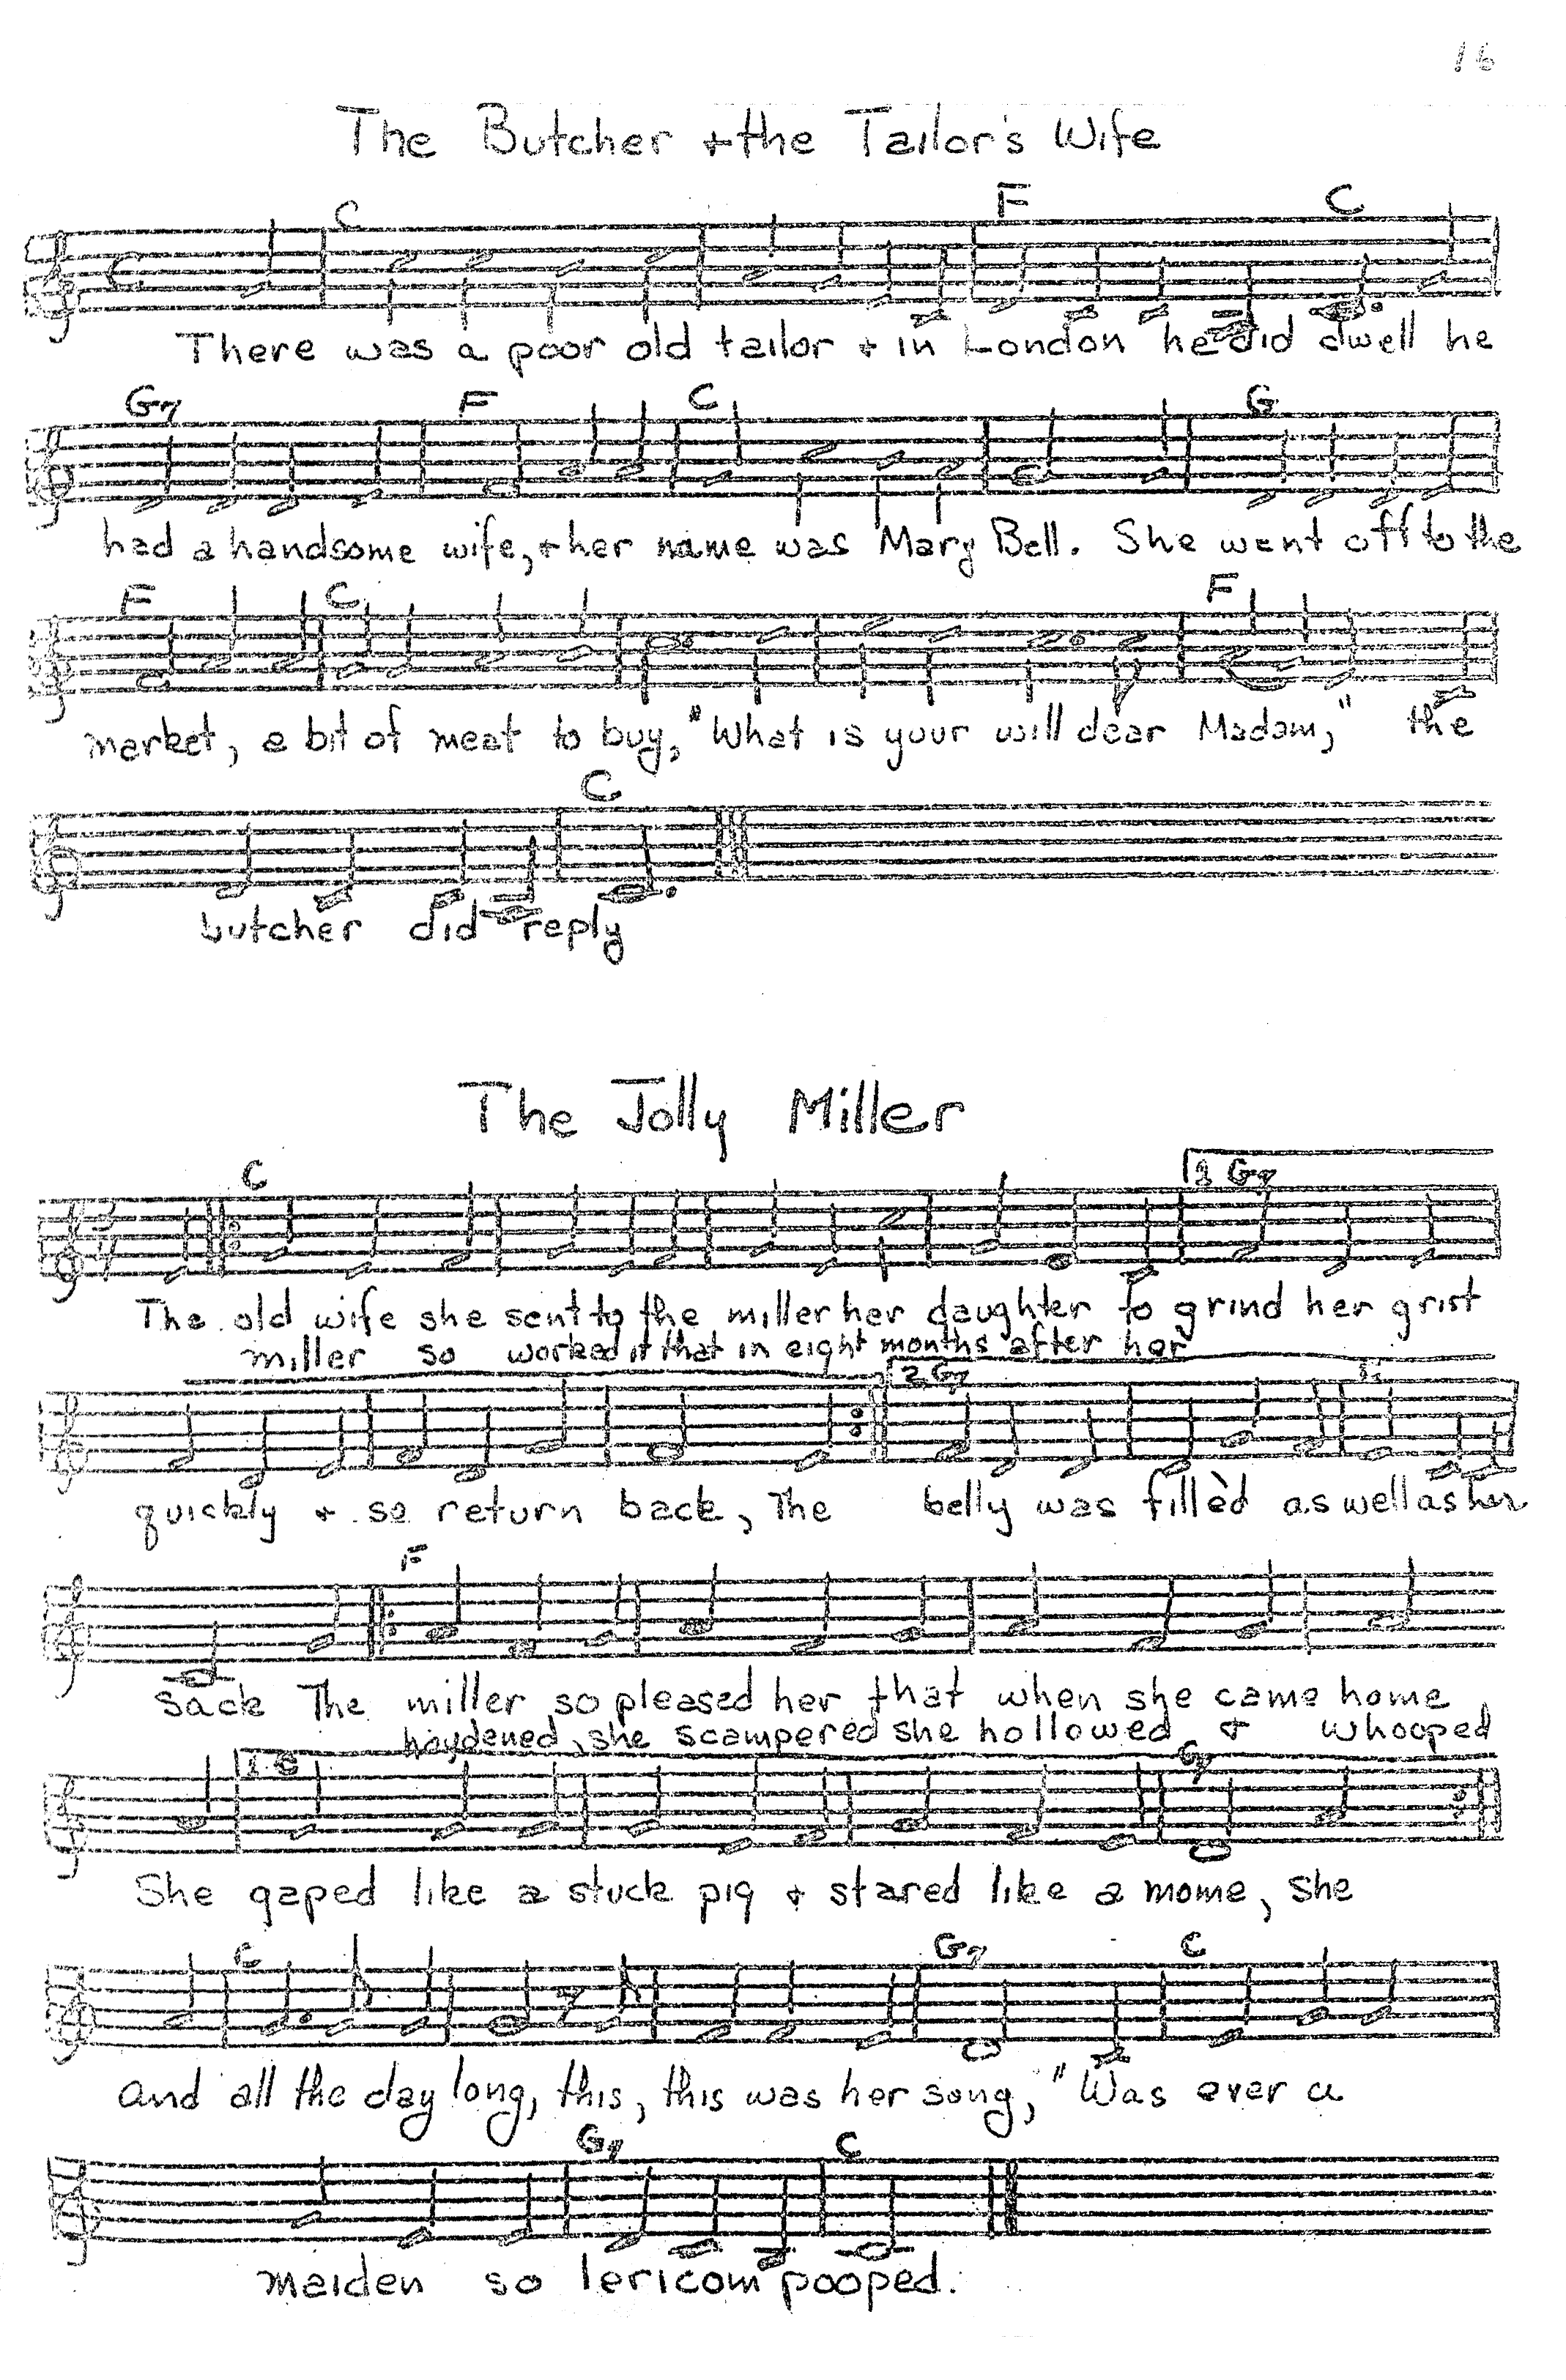 16
The Butcher + the Tailor's Wife
C F C
There was a poor old tailor + in London he did dwell he
G7 F C G
had a handsome wife, + her name was Mary Bell. She went off to the
F C F
market, a bit of meat to buy, "What is your will dear Madam," the
C
butcher did reply
The Jolly Miller
C 1 G7
The old wife she sent to the miller her daughter to grind her grist
miller so worked it that in eight months after her
2. G7
quickly + so return back, The belly was fillèd as well as her
F
sack The miller so pleased her that when she came home
hoydened, she scampered she hollowed + whooped
1. C G7
She gaped like a stuck pig + stared like a mome, she
C G7 C
and all the day long, this, this was her song, "Was ever a
G7 C
maiden so lericom pooped.